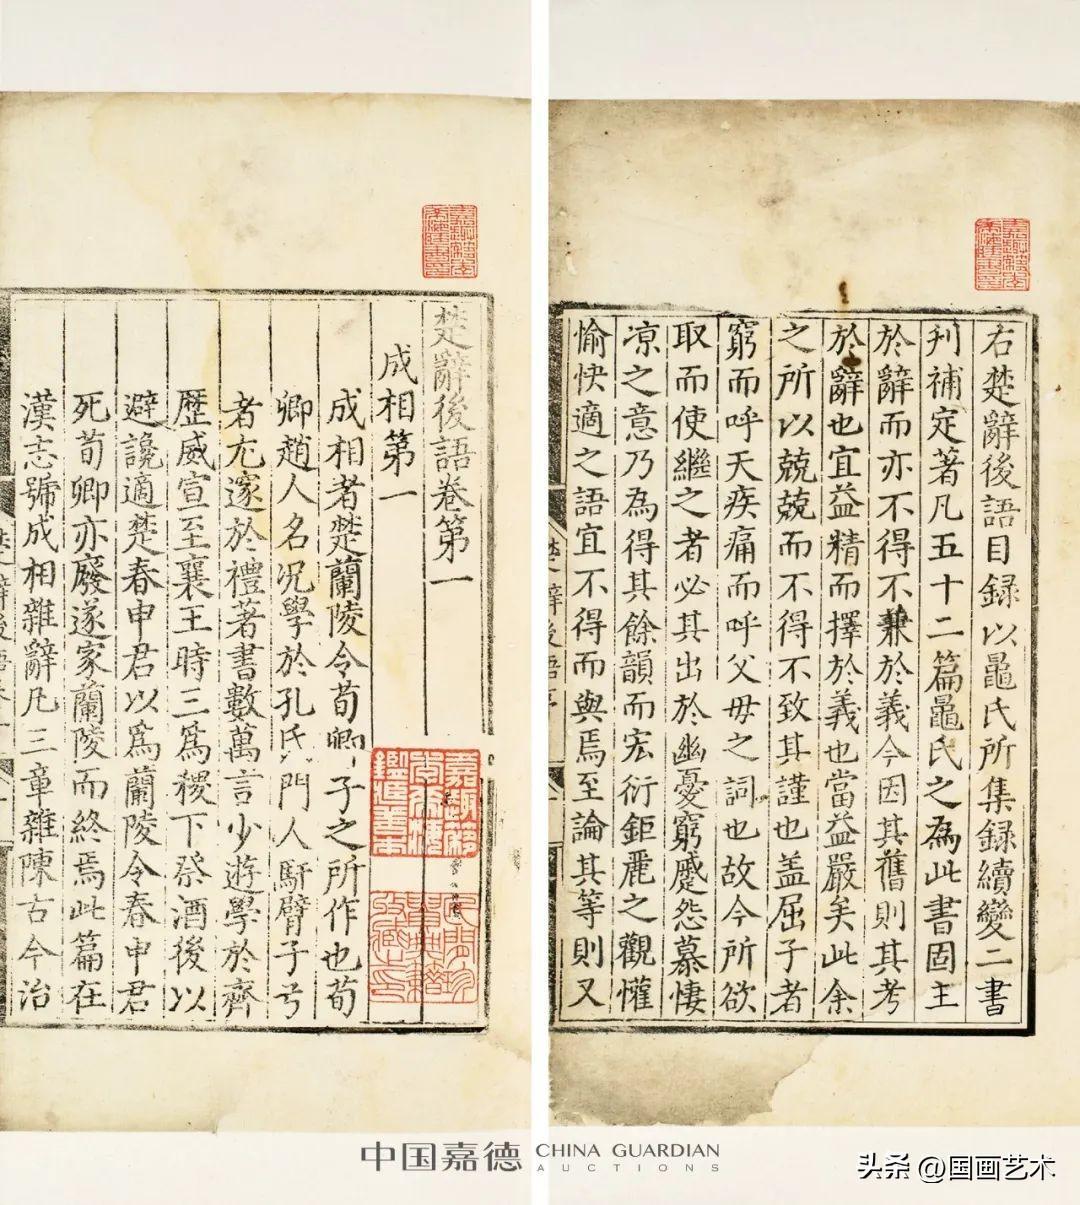 右楚辭後語目録以鼂氏所集録續變二書
刋補定著凡五十二篇鼂氏之為此書固主
於辭而亦不得不兼於義今因其舊則其考
於辭也宜益精而擇於義也當益嚴矣此余
之所以兢兢而不得不致其謹也盖屈子者
窮而呼天疾痛而呼父母之詞也故今所欲
取而使繼之者必其出於幽憂窮蹙怨慕悽
凉之意乃為得其餘韻而宏衍鉅麗之觀懽
愉快適之語宜不得而與焉至論其等則又
楚辭後語卷第一
成相第一
成相者楚蘭陵令荀卿子之所作也荀
卿趙人名况學於孔氏門人馯臂子弓
者尤邃於禮著書數萬言少遊學於齊
歷威宣至襄王時三爲稷下祭酒後以
避讒適楚春申君以爲蘭陵令春申君
死荀卿亦廢遂家蘭陵而終焉此篇在
漢志號成相雜辭凡三章雜陳古今治
中国嘉德 CHINA GUARDIAN
AUCTIONS
头条 @国画艺术